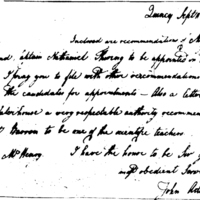 Quincy Sept
Inclosed are recommendations of
and William Nathaniel Thoring to be appointed
I pray you to file with other recommendations
the candidates for appointments — Also a letter
a very respectable authority recommend
to be one of the teachers
Mr Henry. I have the honor to be Sir
most obedient Serv
John Ad